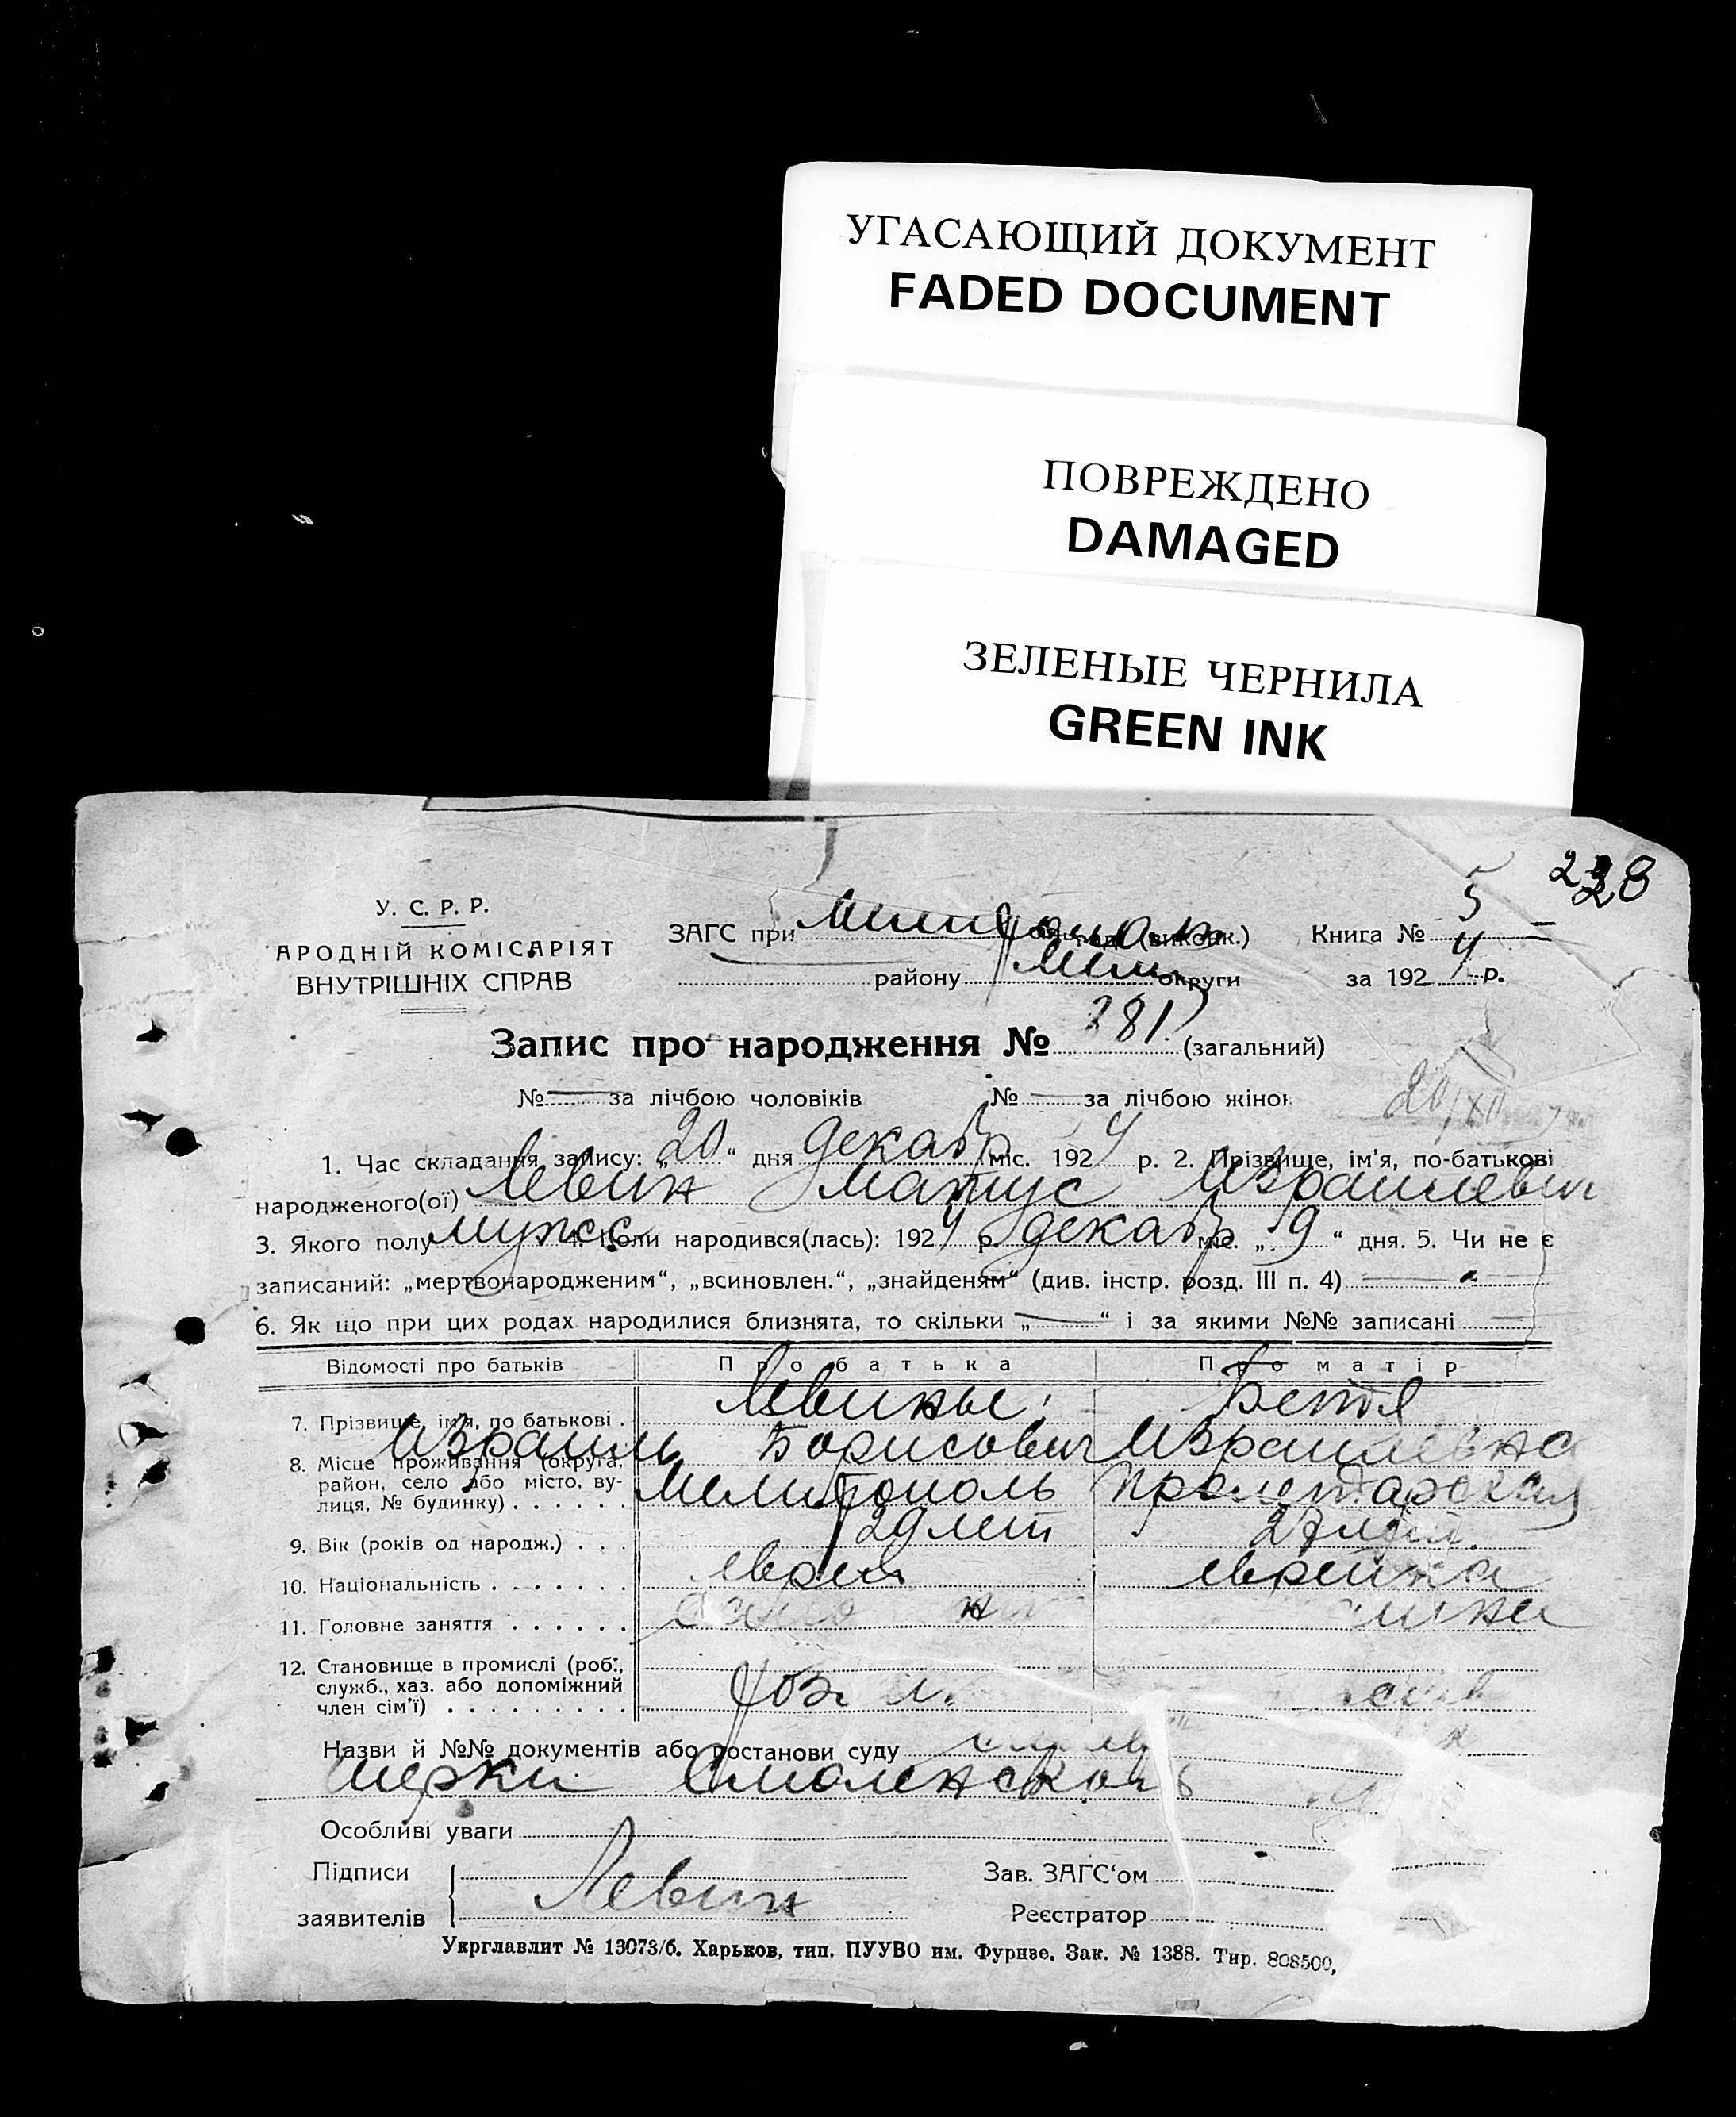 УГАСАЮЩИЙ ДОКУМЕНТ
FADED DOCUMENT
ПОВРЕЖДЕНО
DAMAGED
ЗЕЛЕНЫЕ ЧЕРНИЛА
GREEN INK
228
У. С. Р. Р.
АРОДНІЙ КОМІСАРІЯТ
ВНУТРІШНІХ СПРАВ
ЗАГС при (виконк.) Книга № 5
району Мел. округи за 1924 р.
Запис про народження № 281 (загальний)
№ — за лічбою чоловіків № — за лічбою жінок
20/XII
1. Час складання запису: „20“ дня декабр міс. 1924 р. 2. Прізвище, ім'я, по-батькові
народженого(ої) Левин Матус Израилевич
3. Якого полу мужс 4. Коли народився(лась): 1924 р. декабр міс. „9“ дня. 5. Чи не є
записаний: „мертвонародженим“, „всиновлен.“, „знайденям“ (див. інстр. розд. III п. 4) —
6. Як що при цих родах народилися близнята, то скільки „—“ і за якими №№ записані —
Відомості про батьків Про батька Про матір
7. Прізвище, ім'я, по батькові . Левины: Бетя
Израиль Борисович Израилевна
8. Місце проживання (округа,
район, село або місто, ву-
лиця, № будинку) . . . . . . Мелитополь Пролетарская
9. Вік (років од народж.) . . . 29 лет 27 лет.
10. Національність . . . . . . . еврей еврейка
11. Головне заняття . . . . . .
12. Становище в промислі (роб.,
служб., хаз. або допоміжний
член сім'ї) . . . . . . . . .
Назви й №№ документів або постанови суду
Смоленской
Особливі уваги
Підписи
заявителів Левин
Зав. ЗАГС'ом
Реєстратор
Укрглавлит № 13073/б. Харьков, тип. ПУУВО им. Фурнзе. Зак. № 1388. Тир. 808500,